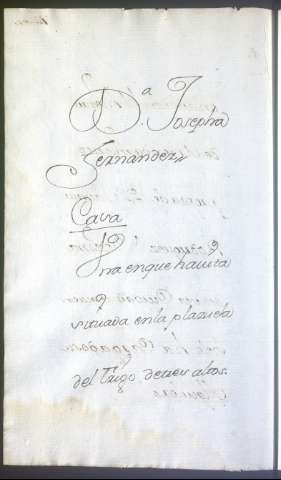 D.ª Josepha
Fernandez
Cava
Una en que havita
situada en la plazuela
del Trigo de tres altos.